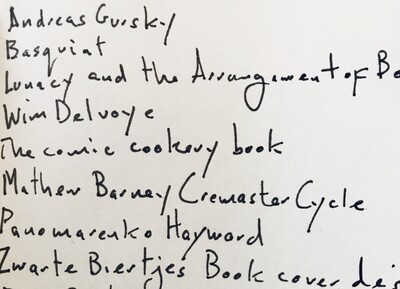 Andreas Gursky
Basquiat
Lunacy and the Arrangement of Bo
Wim Delvoye
The comic cookery book
Mathew Barney Cremaster Cycle
Panomarenko Hayword
Zwarte Biertjes Book cover des